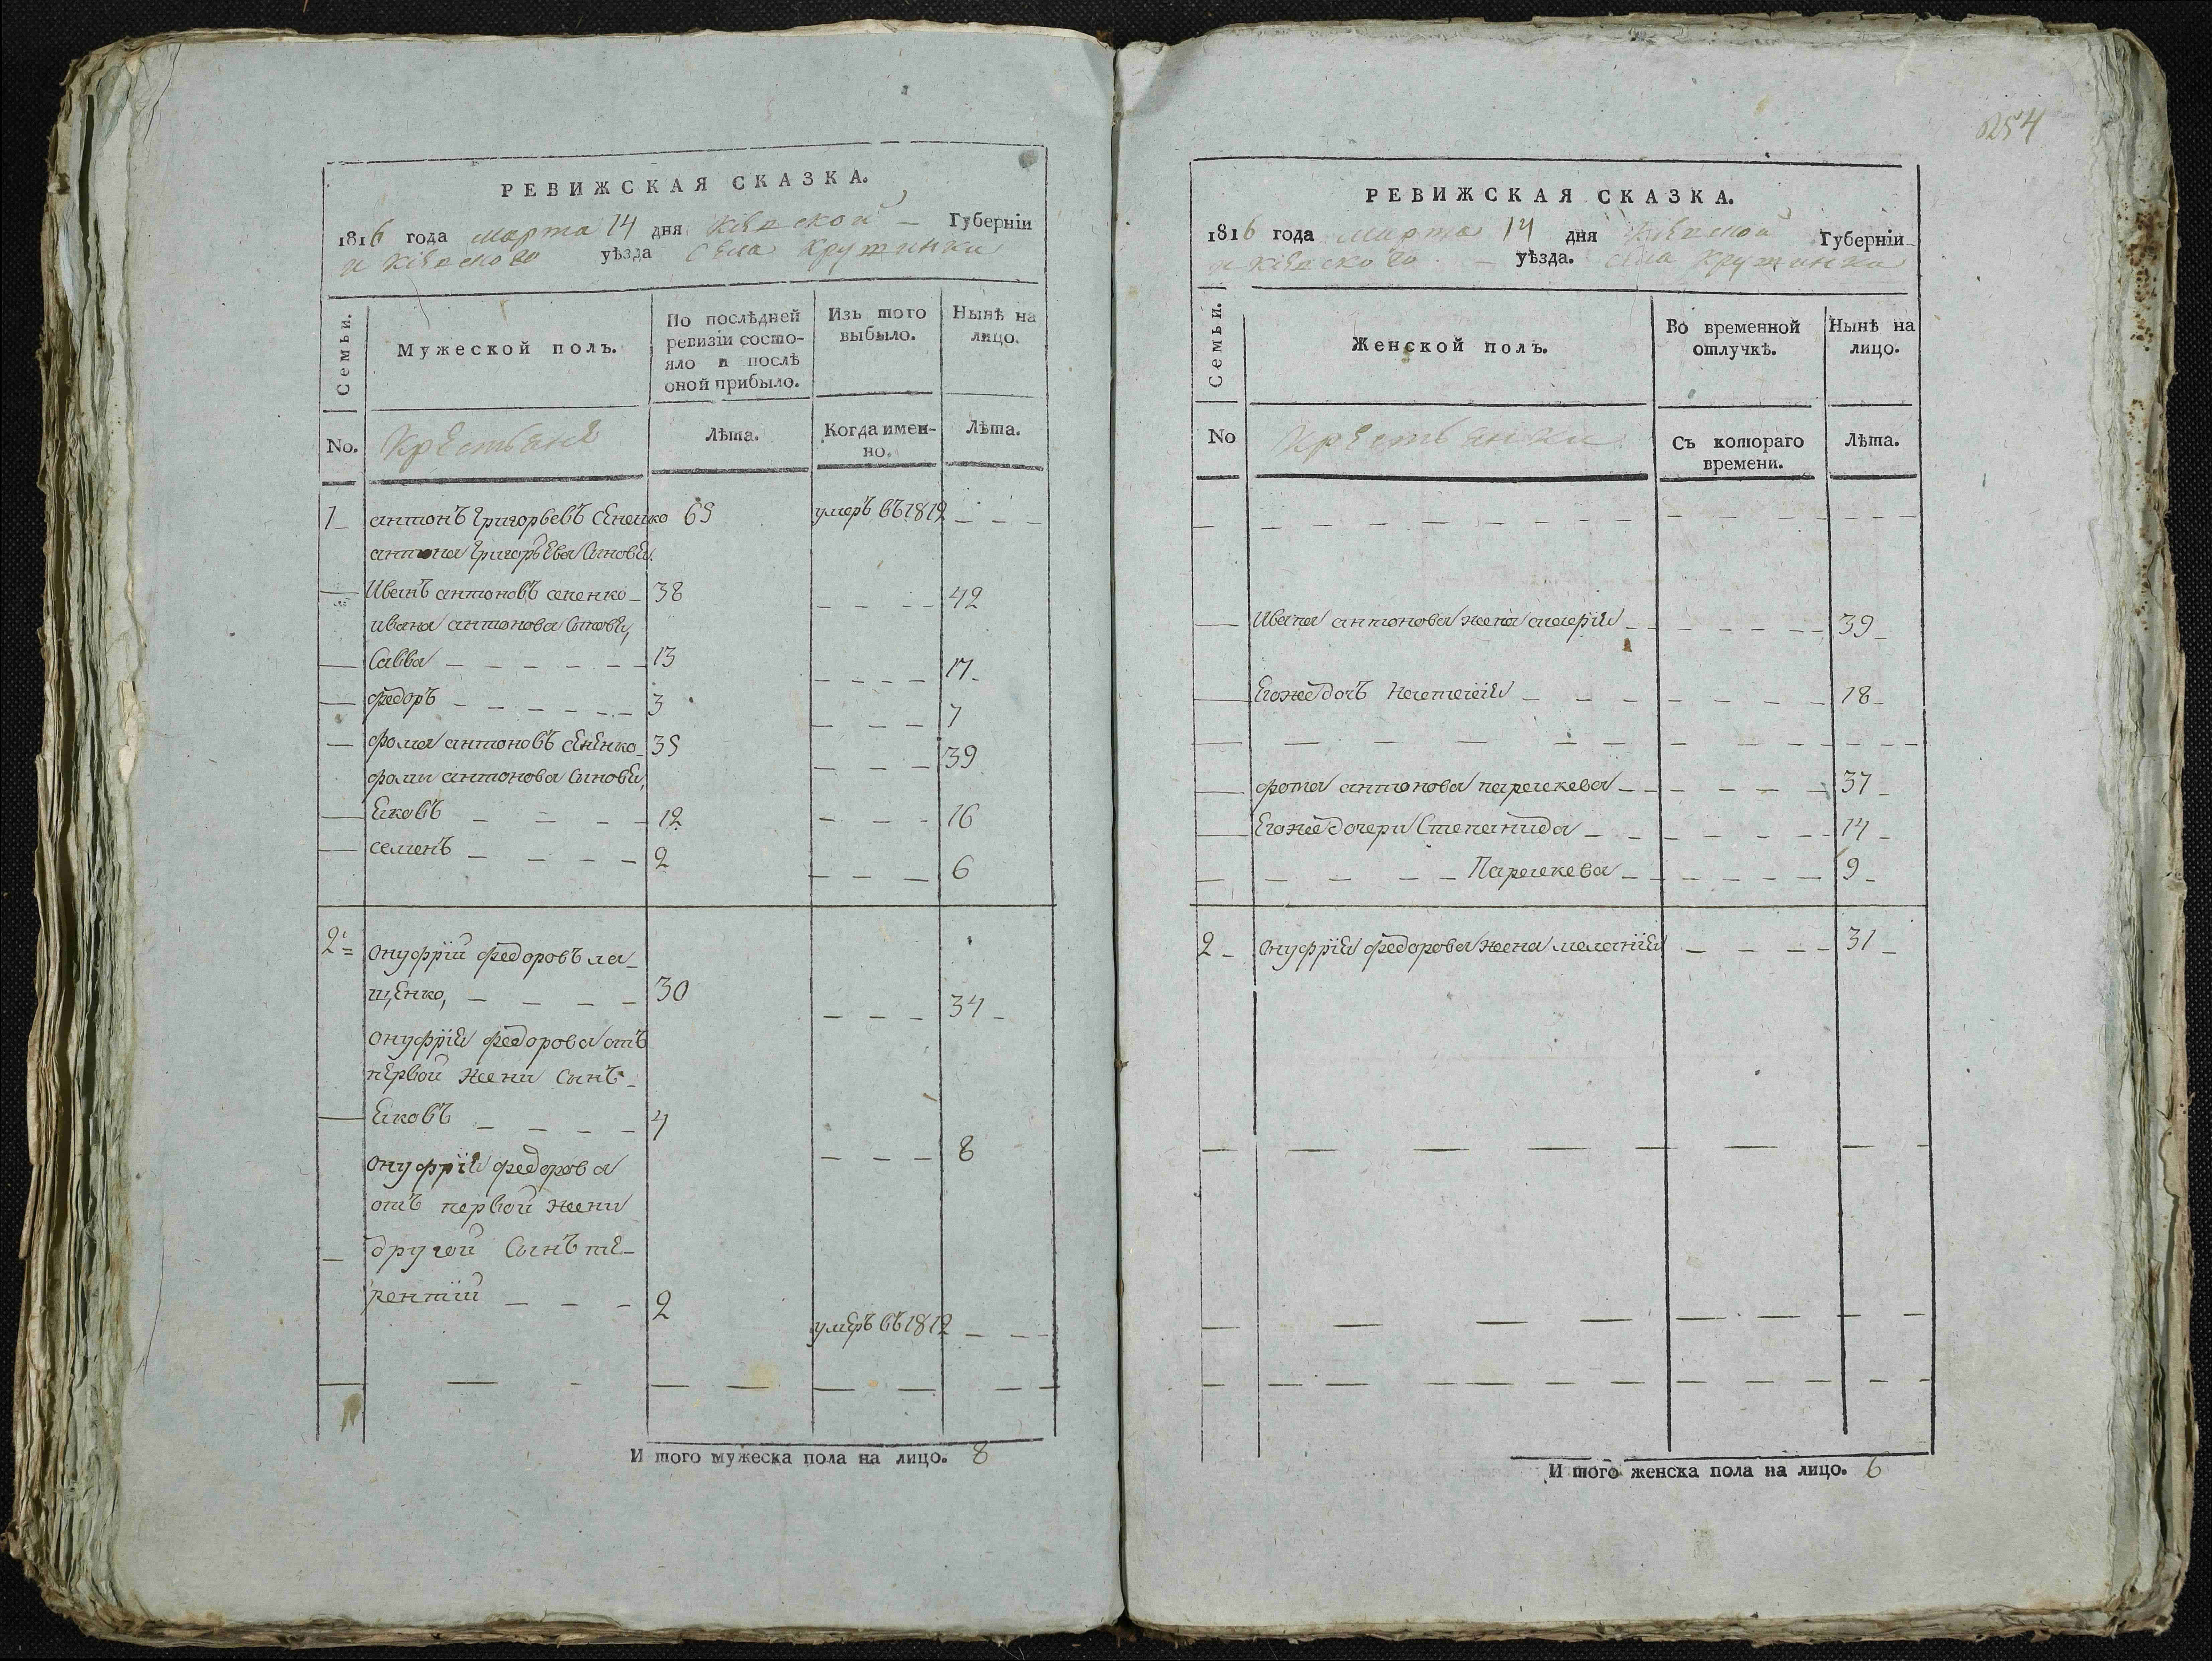 РЕВИЖСКАЯ СКАЗКА.
1816 года марта 14 дня Кіевской Губерніи
и Кіевского уѣзда Села Кружинки
Семьи.
Мужеской полъ.
По послѣдней ревизіи состояло и послѣ оной прибыло.
Изъ того выбыло.
Нынѣ на лицо.
No.
Крестьяне
Лѣта.
Когда именно.
Лѣта.
1 антонъ Григорьевъ Сененко 65 умеръ въ 1812
антона Григорьева Сыновя
Иванъ антоновъ сененко 38 42
ивана антонова Сыновя,
Савва 13 17
федоръ 3 7
фома антоновъ Сененко 35 39
фомы антонова Сыновя,
Яковъ 12 16
семенъ 2 6
2 Онуфрій федоровъ ла-
щенко, 30 34
Онуфрія федорова отъ
первой жени Сынъ
Яковъ 4 8
Онуфрія федорова
отъ первой жени
другой Сынъ те-
рентій 2 умеръ въ 1812
И того мужеска пола на лицо. 8
254
РЕВИЖСКАЯ СКАЗКА.
1816 года марта 14 дня Кіевской Губерніи
и Кіевского уѣзда. села Кружинки
Семьи.
Женской полъ.
Во временной отлучкѣ.
Нынѣ на лицо.
No
Крестьянки
Съ котораго времени.
Лѣта.
Ивана антонова жена марія 39
Егоже дочъ 18
фома антонова параскева 37
Егоже дочери Степанида 14
Параскева 9
2 Онуфрія федорова жена меланія 31
И того женска пола на лицо. 6